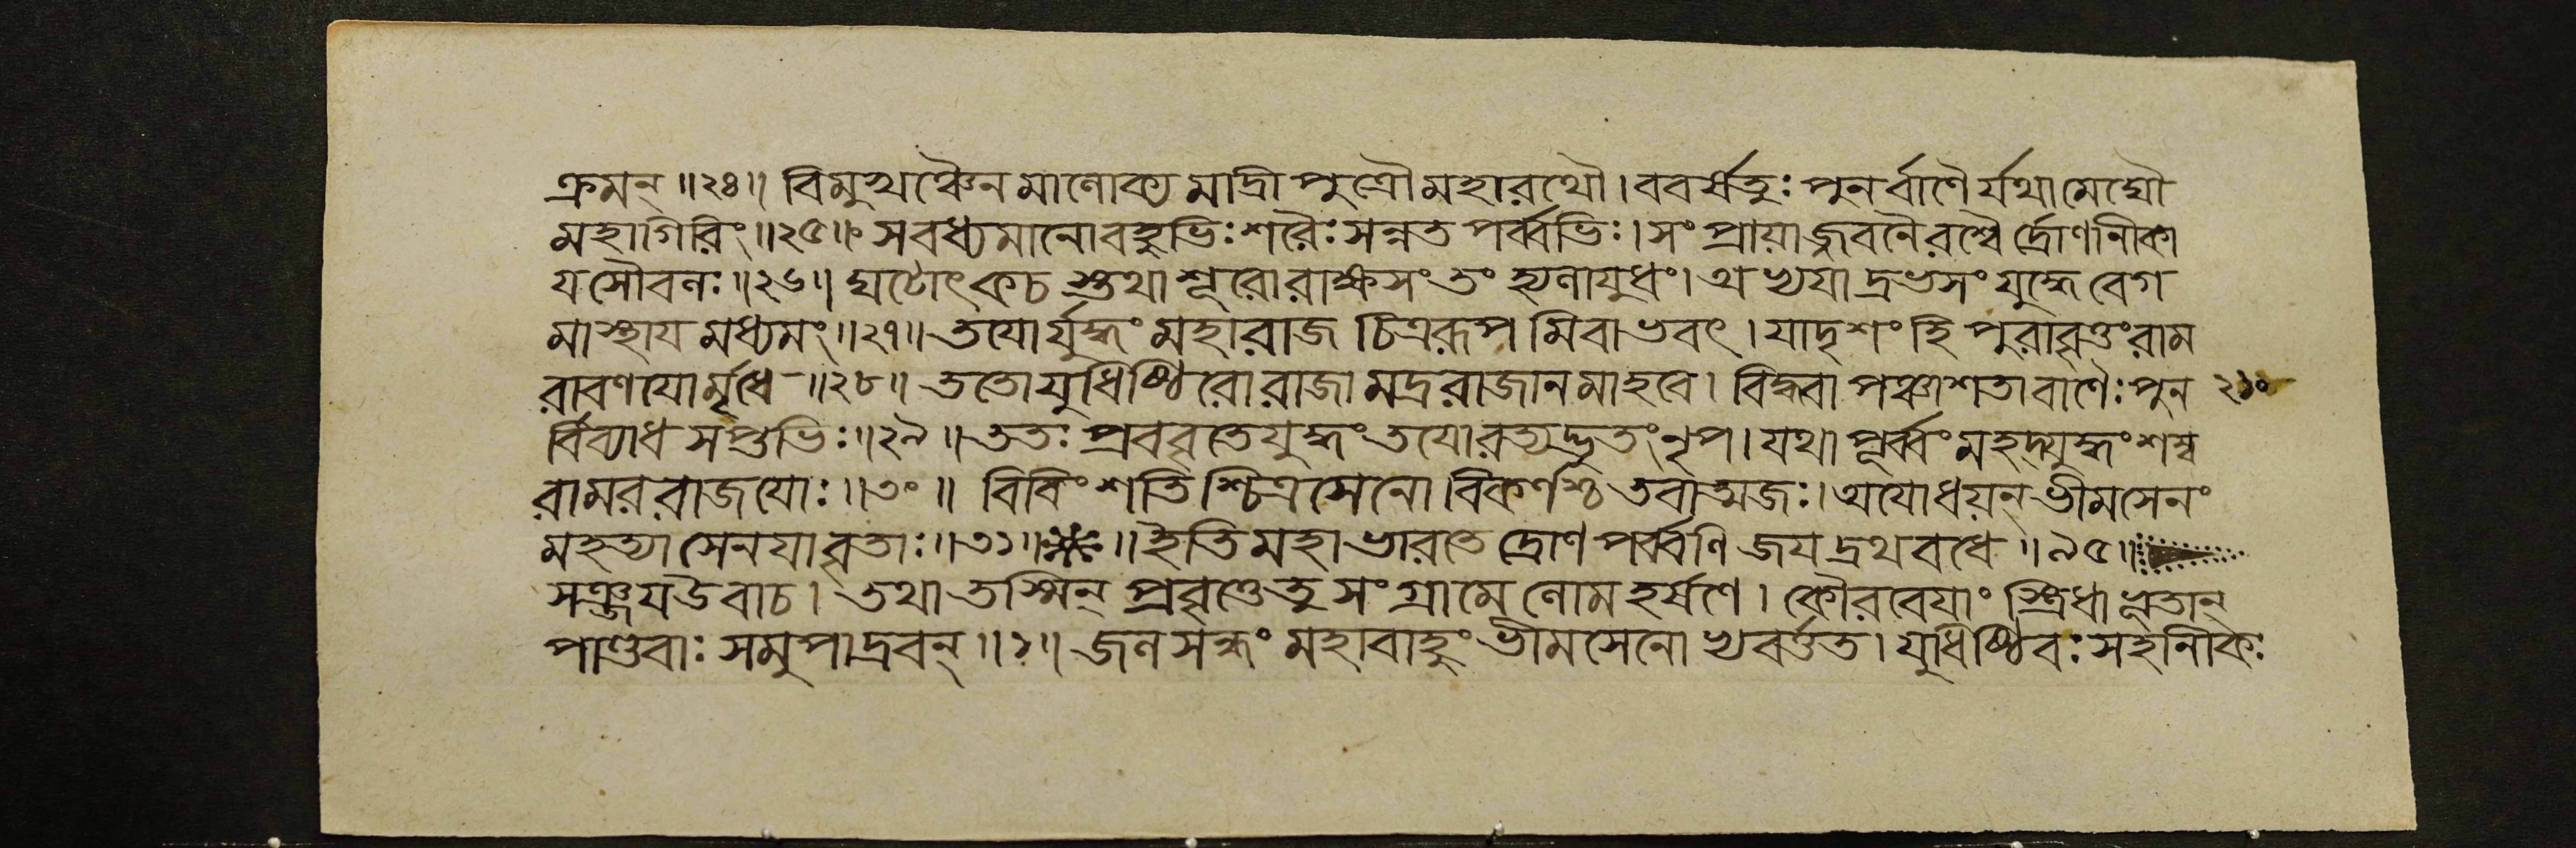 ক্রমন্ ॥২৪॥ বিমুখঞ্চৈনমালোক্য মাদ্রী পুত্রৌ মহারথৌ । ববর্ষতুঃ পুনর্ব্বাণৈর্যথা মেঘৌ
মহাগিরিং ॥২৫॥ স বধ্যমানো বহুভিঃ শরৈঃ সন্নত পর্ব্বভিঃ । সংপ্রায়াজ্জবনৈরশ্বৈ র্দ্রোণানীকা
য সৌবলঃ ॥২৬॥ ঘটোৎকচ স্তথা শূরো রাক্ষসং তং হ্যলাযুধং । অভ্যযাদ্রভসং যুদ্ধে বেগ
মাস্থায মধ্যমং ॥২৭॥ তযোর্যুদ্ধং মহারাজ চিত্ররূপ মিবাভবৎ । যাদৃশং হি পুরাবৃত্তং রাম
রাবণযোর্মৃধে ॥২৮॥ ততো যুধিষ্ঠিরো রাজা মদ্ররাজানমাহবে । বিদ্ধ্বা পঞ্চাশতা বাণৈঃ পুন ২১০
র্বিব্যাধ সপ্তভিঃ ॥২৯॥ ততঃ প্রববৃতে যুদ্ধং তযোরত্যদ্ভুতং নৃপ । যথা পূর্ব্বং মহদ্যুদ্ধং শম্ব
রামররাজযোঃ ॥৩০॥ বিবিংশতি শ্চিত্রসেনো বিকর্ণশ্চ তবাত্মজঃ । অযোধয়ন্ ভীমসেনং
মহত্যা সেনযা বৃতাঃ ॥৩১॥ ॥ ইতি মহাভারতে দ্রোণ পর্ব্বণি জযদ্রথবধে ॥৯৫॥
সঞ্জযউবাচ । তথা তস্মিন্ প্রবৃত্তে তু সংগ্রামে লোমহর্ষণে । কৌরবেযাং স্ত্রিধা ভূতান্
পাণ্ডবাঃ সমুপাদ্রবন্ ॥১॥ জলসন্ধং মহাবাহুং ভীমসেনো ভ্যবর্ত্তত । যুধিষ্ঠিরঃ সহানীকঃ